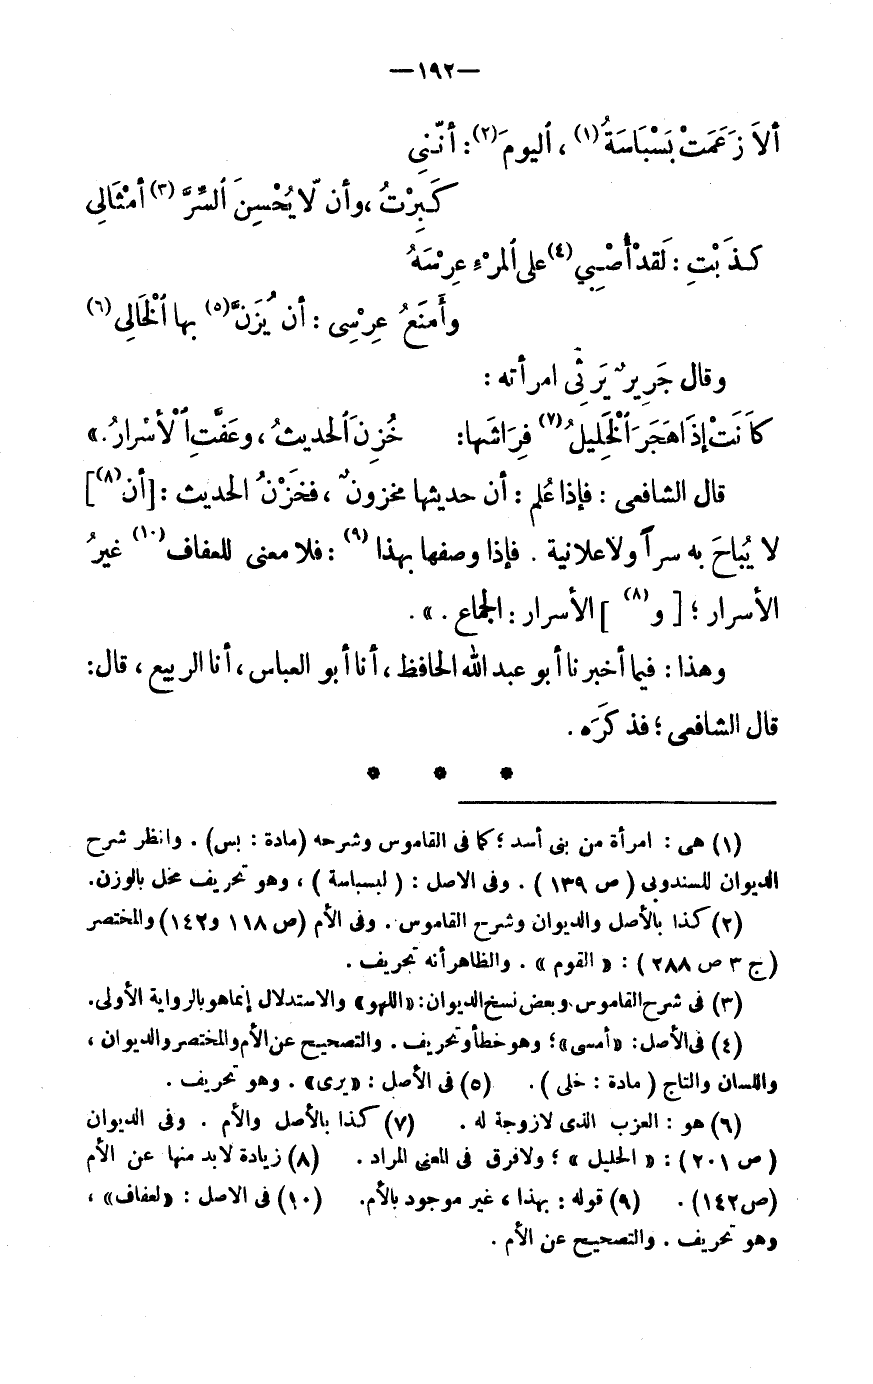 —١٩٢—
ألاَ زَعَمَتْ بَسْبَاسَةُ(١) ، ٱليومَ(٢): أنّني
كَبِرْتُ ،وأن لّا يُحْسِنَ ٱلسِّرَّ(٣) أمْثَالِى
كذَبْتِ : لَقدْ أُصْبِي(٤) على ٱلمرْءِ عِرْسَهُ
وأَمنَعُ عِرْسِى : أن يُزَنَّ(٥) بها ٱلْخَالِى(٦)
وقال جَرِيرٌ يَرْثِى امرأته :
كاَنَتْ إذَا هَجَرَ ٱلْخَلِيلُ(٧) فِرَاشَها: خُزِنَ ٱلحديثُ ، وعَفَّتِ ٱلْأسْرارُ.»
قال الشافعى : فإذا عُلم : أن حديثها مخزونٌ ، فخَزْنُ الحديث : [أن(٨)]
لا يُباحَ به سراً ولاعلانية . فإذا وصفها بهذا(٩) : فلا معنى للعفاف(١٠) غيرُ
الأسرار ؛ [ و(٨) ] الأسرار : الجماع . » .
وهذا : فيما أخبرنا أبو عبد الله الحافظ ، أنا أبو العباس ، أنا الربيع ، قال:
قال الشافعى ؛ فذكَرَه .
* * *
(١) هى : امرأة من بنى أسد ؛ كما فى القاموس وشرحه (مادة : بس) . وانظر شرح
الديوان للسندوبى ( ص ١٣٩ ) . وفى الاصل : ( لبسباسة ) ، وهو تحريف مخل بالوزن.
(٢) كذا بالأصل والديوان وشرح القاموس . وفى الأم (ص ١١٨ و١٤٢) والمختصر
(ج ٣ ص ٢٨٨ ) : « القوم » . والظاهر أنه تحريف .
(٣) فى شرح القاموس،وبعض نسخ الديوان: «اللهو» والاستدلال إنما هو بالرواية الأولى.
(٤) فى الأصل: «أمسى»؛ وهو خطأ وتحريف . والتصحيح عن الأم والمختصر والديوان ،
واللسان والتاج ( مادة : خلى ) . (٥) فى الأصل : «يرى» . وهو تحريف .
(٦) هو : العزب الذى لازوجة له . (٧) كذا بالأصل والأم . وفى الديوان
( ص ٢٠١ ) : « الحليل » ؛ ولافرق فى المعنى المراد . (٨) زيادة لابد منها عن الأم
(ص١٤٢) . (٩) قوله : بهذا ، غير موجود بالأم. (١٠) فى الاصل : «لعفاف» ،
وهو تحريف . والتصحيح عن الأم .